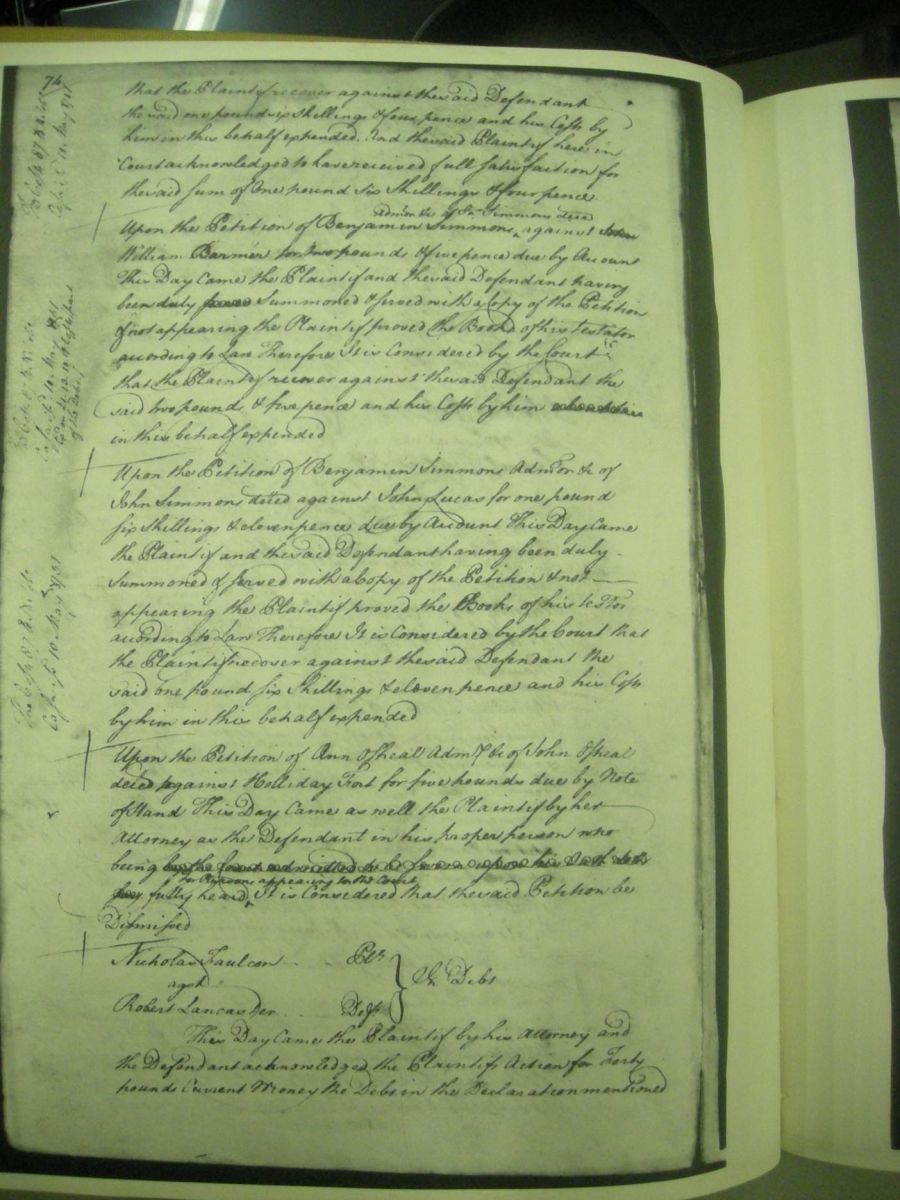 74
that the Plaintif recover against the said Defendant
the said one pound six shillings & four pence and his Costs by
him in this behalf expended. And the said Plaintif here in
Court acknowledged to have received full satisfaction for
the said sum of One pound six Shillings & four pence.
admor &c of Jn Simmons deced
Upon the Petition of Benjamin Simmons against John
William Barmer for two pounds & five pence due by Account
This Day Came the Plaintif and the said Defendant having
been duly Summoned & served with a Copy of the Petition
& not appearing the Plaintif proved the Books of his Testator
according to Law Therefore It is Considered by the Court
that the Plaintif recover against the said Defendant the
said two pounds & five pence and his Costs by him
in this behalf expended
Upon the Petition of Benjamin Simmons Admor &c of
John Simmons deced against John Lucas for one pound
six shillings & eleven pence due by Account This Day Came
the Plaintif and the said Defendant having been duly
Summoned & served with a Copy of the Petition & not
appearing the Plaintif proved the Books of his testor
according to Law Therefore It is Considered by the Court that
the Plaintif recover against the said Defendant the
said one pound six Shillings & eleven pence and his Costs
by him in this behalf expended
Upon the Petition of Ann Osheal Adm &c of John Osheal
deced against Holliday Fort for five pounds due by Note
of Hand This Day Came as well the Plaintif by her
Attorney as the Defendant in his proper person who
being by the Court admitted to be sworn upon his Oath
Reasons appearing to the Court
fully heard, It is Considered that the said Petition be
Dismissed
Nicholas Faulcon Plt
agst
In Debt
Robert Lancaster Deft
This Day Came the Plaintif by his Attorney and
the Defendant acknowledged the Plaintifs Action for Forty
pounds Current Money the Debt in the Declaration mentioned